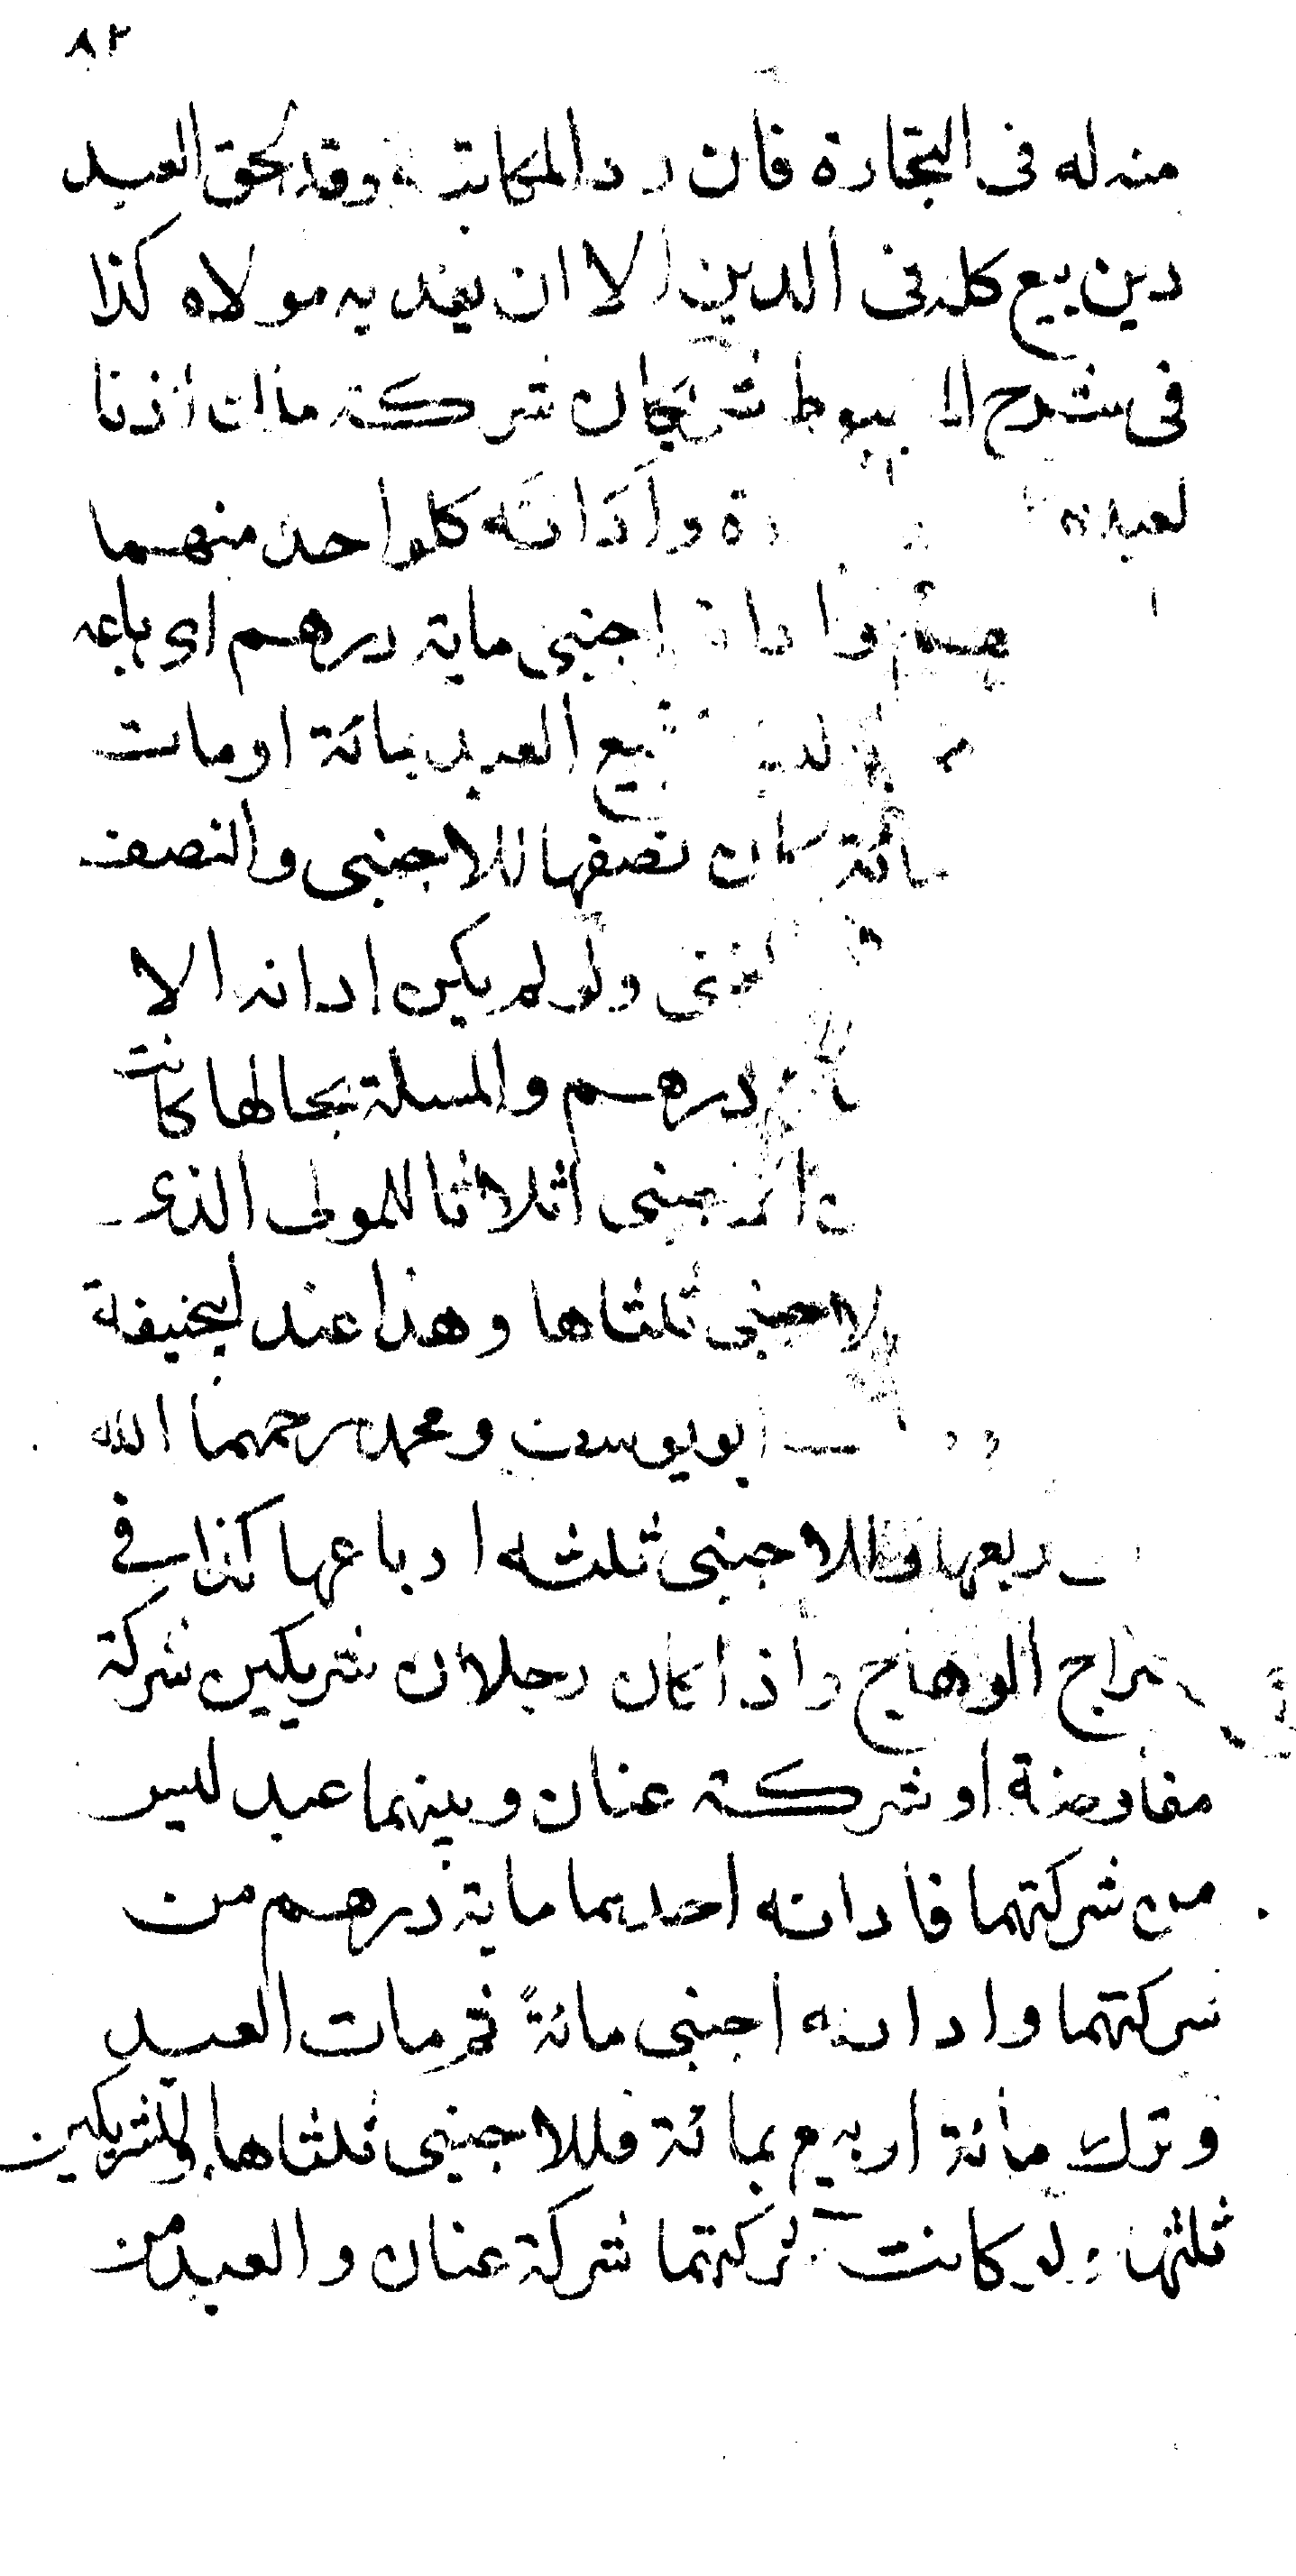 ٨٢
منه له فى التجارة فان رد المكاتبة وقد لحق العبد
دين بيع كله فى الدين الا ان يفديه مولاه كذا
فى شرح شريكان شركة ملك اذنا
لعبدهما وادانه كل واحد منهما
اجنبى ماية درهم اى باعه
بيع العبد بمائة او مات
مائة كان نصفها للاجنبى والنصف
ولو لم يكن ادانه الا
درهم والمسلة بحالها كانت
اثلاثا للمولى الذى
ثلثاها وهذا عند ابيحنيفة
ابو يوسف ومحمد رحمهما الله
ربعها وللاجنبى ثلثه ارباعها كذا فى
الوهاج واذا كان رجلان شريكين شركة
مفاوضة او شركة عنان وبينهما عبد ليس
من شركتهما فادانه احديهما ماية درهم من
شركتهما وادانه اجنبى مائةً ثم مات العبد
وترك مائة او بيع بمائة فللاجنبى ثلثاها وللشريكين
ثلثها ولو كانت شركتهما شركة عنان والعبد من